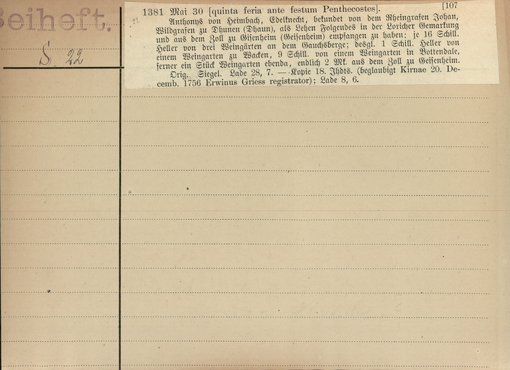 Beiheft.
S. 22
1381 Mai 30 [quinta feria ante festum Penthecostes]. [107
Anthonys von Heimbach, Edelknecht, bekundet von dem Rheingrafen Johan,
Wildgrafen zu Dhunen (Dhaun), als Lehen Folgendes in der Loricher Gemarkung
und aus dem Zoll zu Gisenheim (Geisenheim) empfangen zu haben: je 16 Schill.
Heller von drei Weingärten an dem Gauchsberge; desgl. 1 Schill. Heller von
einem Weingarten zu Wacken, 9 Schill. von einem Weingarten in Bottendale,
ferner ein Stück Weingarten ebenda, endlich 2 Mk. aus dem Zoll zu Geisenheim.
Orig. Siegel. Lade 28, 7. — Kopie 18. Jhdts. (beglaubigt Kirnae 20. De-
cemb. 1756 Erwinus Griess registrator); Lade 8, 6.